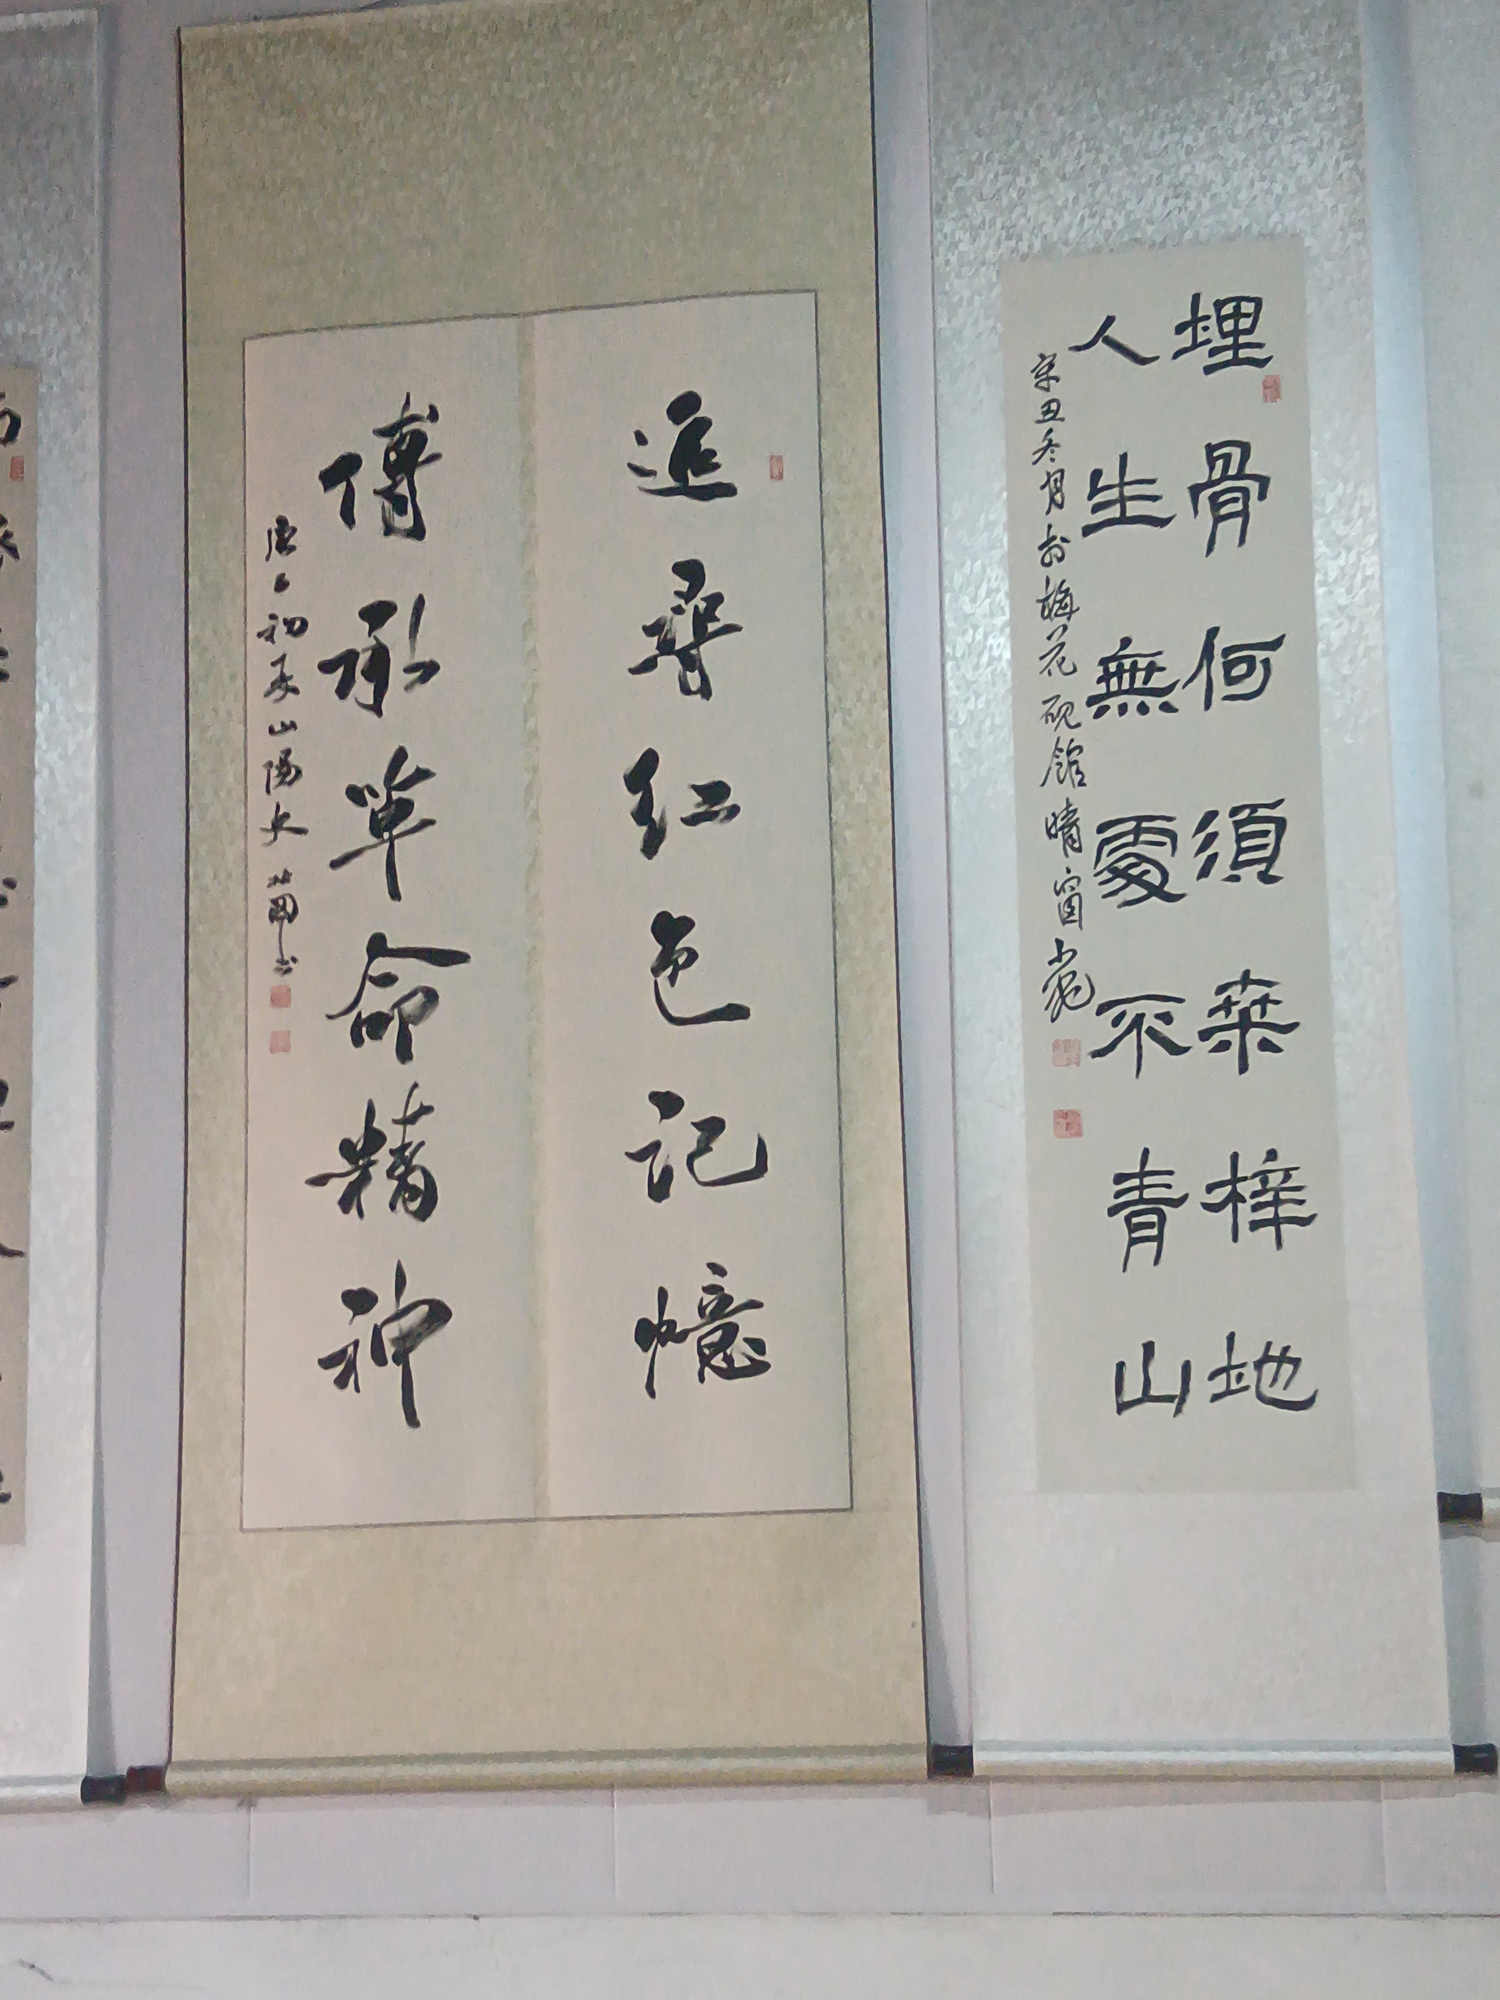 埋骨何須桑梓地
人生無處不青山
辛丑冬月於梅花砚館晴窗
追尋红色记憶
傳承革命精神
初夏山陽